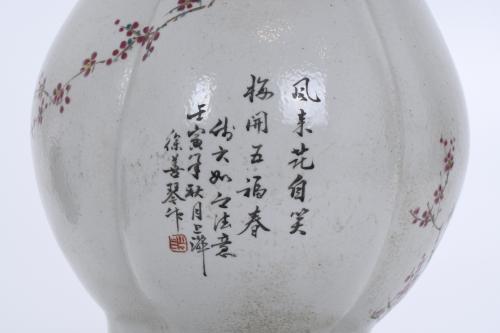 風来花自笑
梅開五福春
六如之法意
壬寅年秋月上澣
徐善琴作